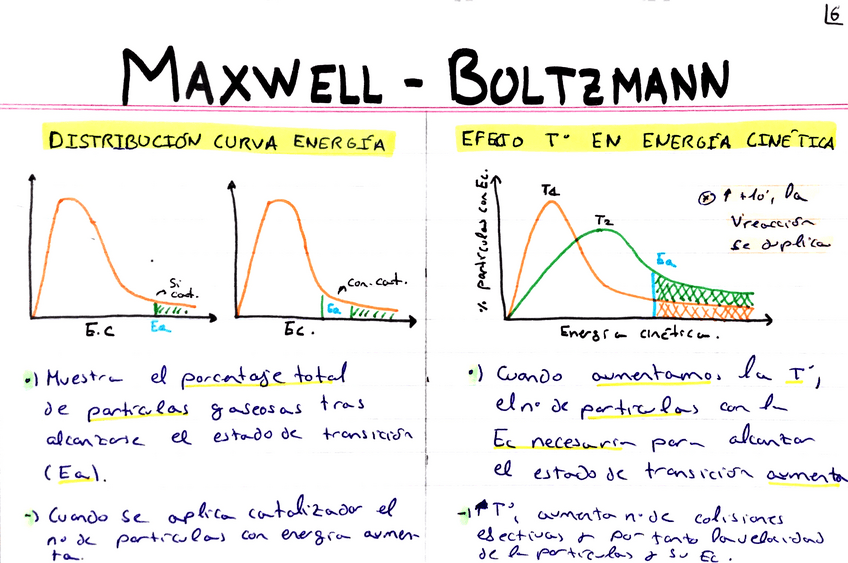 6
MAXWELL - BOLTZMANN
DISTRIBUCIÓN CURVA ENERGÍA
Si
cat.
E.C
Ea
Con. cat.
Ea
Ec.
•) Muestra el porcentaje total
de partículas gaseosas tras
alcanzarse el estado de transición
(Ea).
-) Cuando se aplica catalizador el
nº de partículas con energía aumen-
ta.
EFECTO Tº EN ENERGÍA CINÉTICA
% partículas con Ec.
T1
T2
Ea
Energía cinética.
* ↑ +10º, la
Vreacción
se duplica
•) Cuando aumentamos la Tº,
el nº de partículas con la
Ec necesaria para alcanzar
el estado de transición aumenta
-) ↑Tº, aumenta nº de colisiones
efectivas y por tanto la velocidad
de la partículas y su Ec.